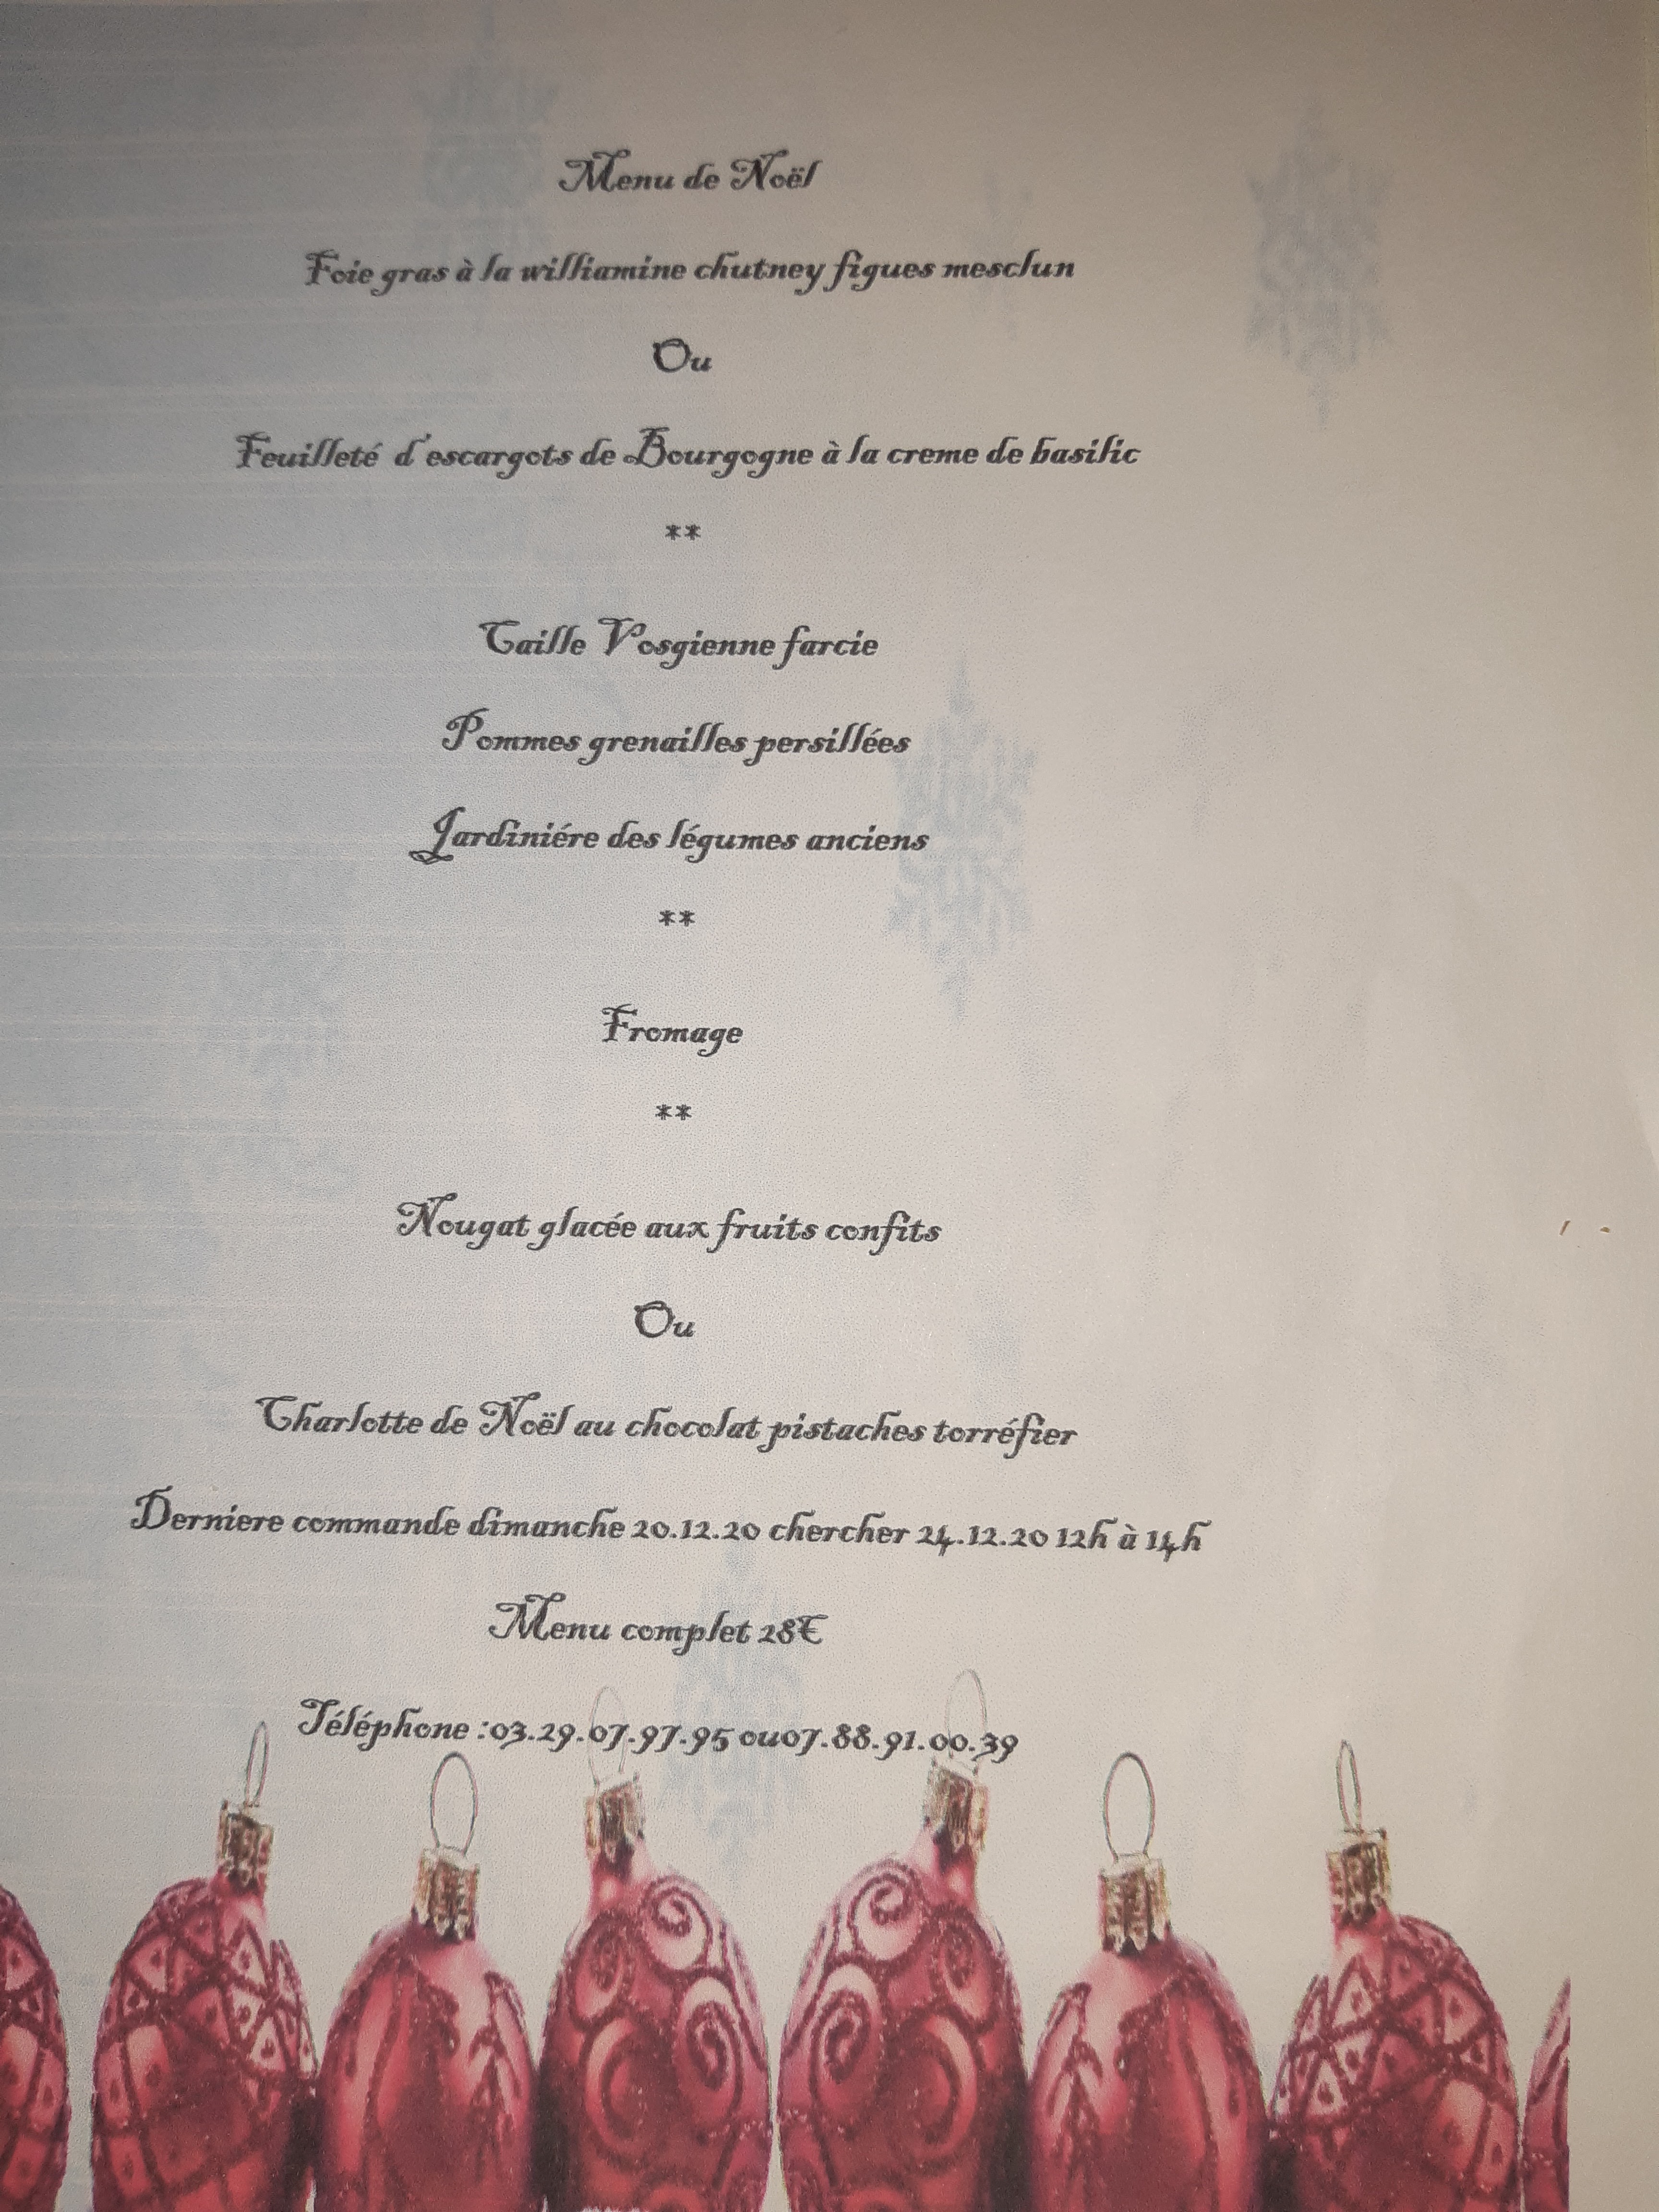 Menu de Noël
Foie gras à la williamine chutney figues mesclun
Ou
Feuilleté d'escargots de Bourgogne à la creme de basilic
**
Caille Vosgienne farcie
Pommes grenailles persillées
Jardiniére des légumes anciens
**
Fromage
**
Nougat glacée aux fruits confits
Ou
Charlotte de Noël au chocolat pistaches torréfier
Derniere commande dimanche 20.12.20 chercher 24.12.20 12h à 14h
Menu complet 28€
Téléphone :03.29.07.97.95 ou07.88.91.00.39